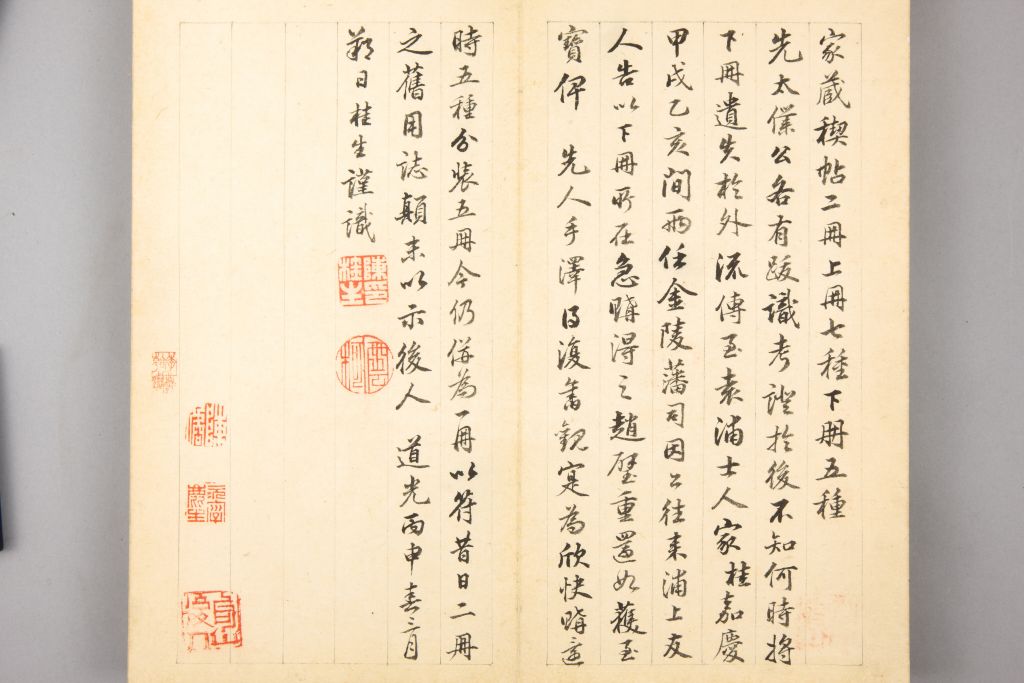 家藏稧帖二冊上冊七種下冊五種
先太僕公各有跋識考證於後不知何時將
下冊遺失於外流傳至袁浦士人家桂嘉慶
甲戌乙亥間兩任金陵藩司因公往來浦上友
人告以下冊所在急購得之趙璧重還如獲至
寶俾 先人手澤得復舊觀寔為欣快購還
時五種分裝五冊今仍併為一冊以符昔日二冊
之舊用誌顛末以示後人 道光丙申春三月
朔日桂生謹識
陳桂生印